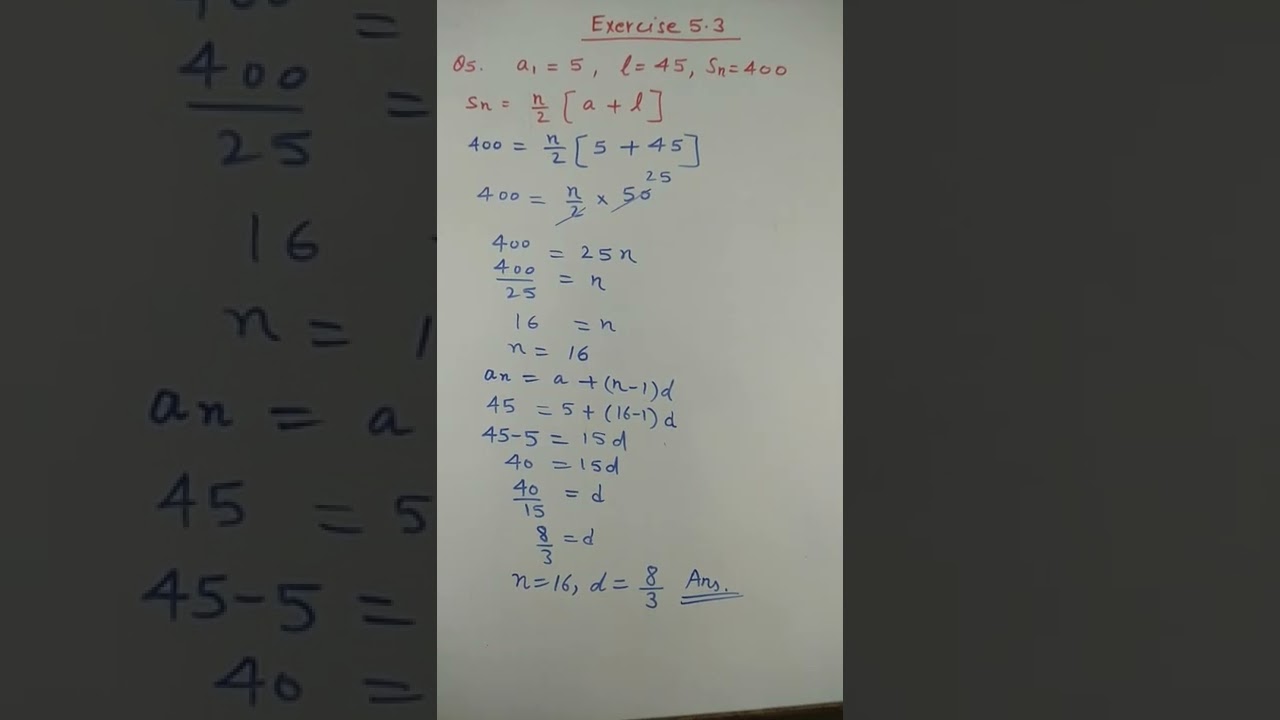 Exercise 5.3
Q5. a₁ = 5, l = 45, Sn = 400
Sn = n/2 [a + l]
400 = n/2 [5 + 45]
400 = n/2 × 50 25
400 = 25n
400/25 = n
16 = n
n = 16
an = a + (n-1)d
45 = 5 + (16-1)d
45-5 = 15d
40 = 15d
40/15 = d
8/3 = d
n=16, d = 8/3 Ans.
400 =
400/25 =
16
n = 1
an = a
45 = 5
45-5 =
40 =